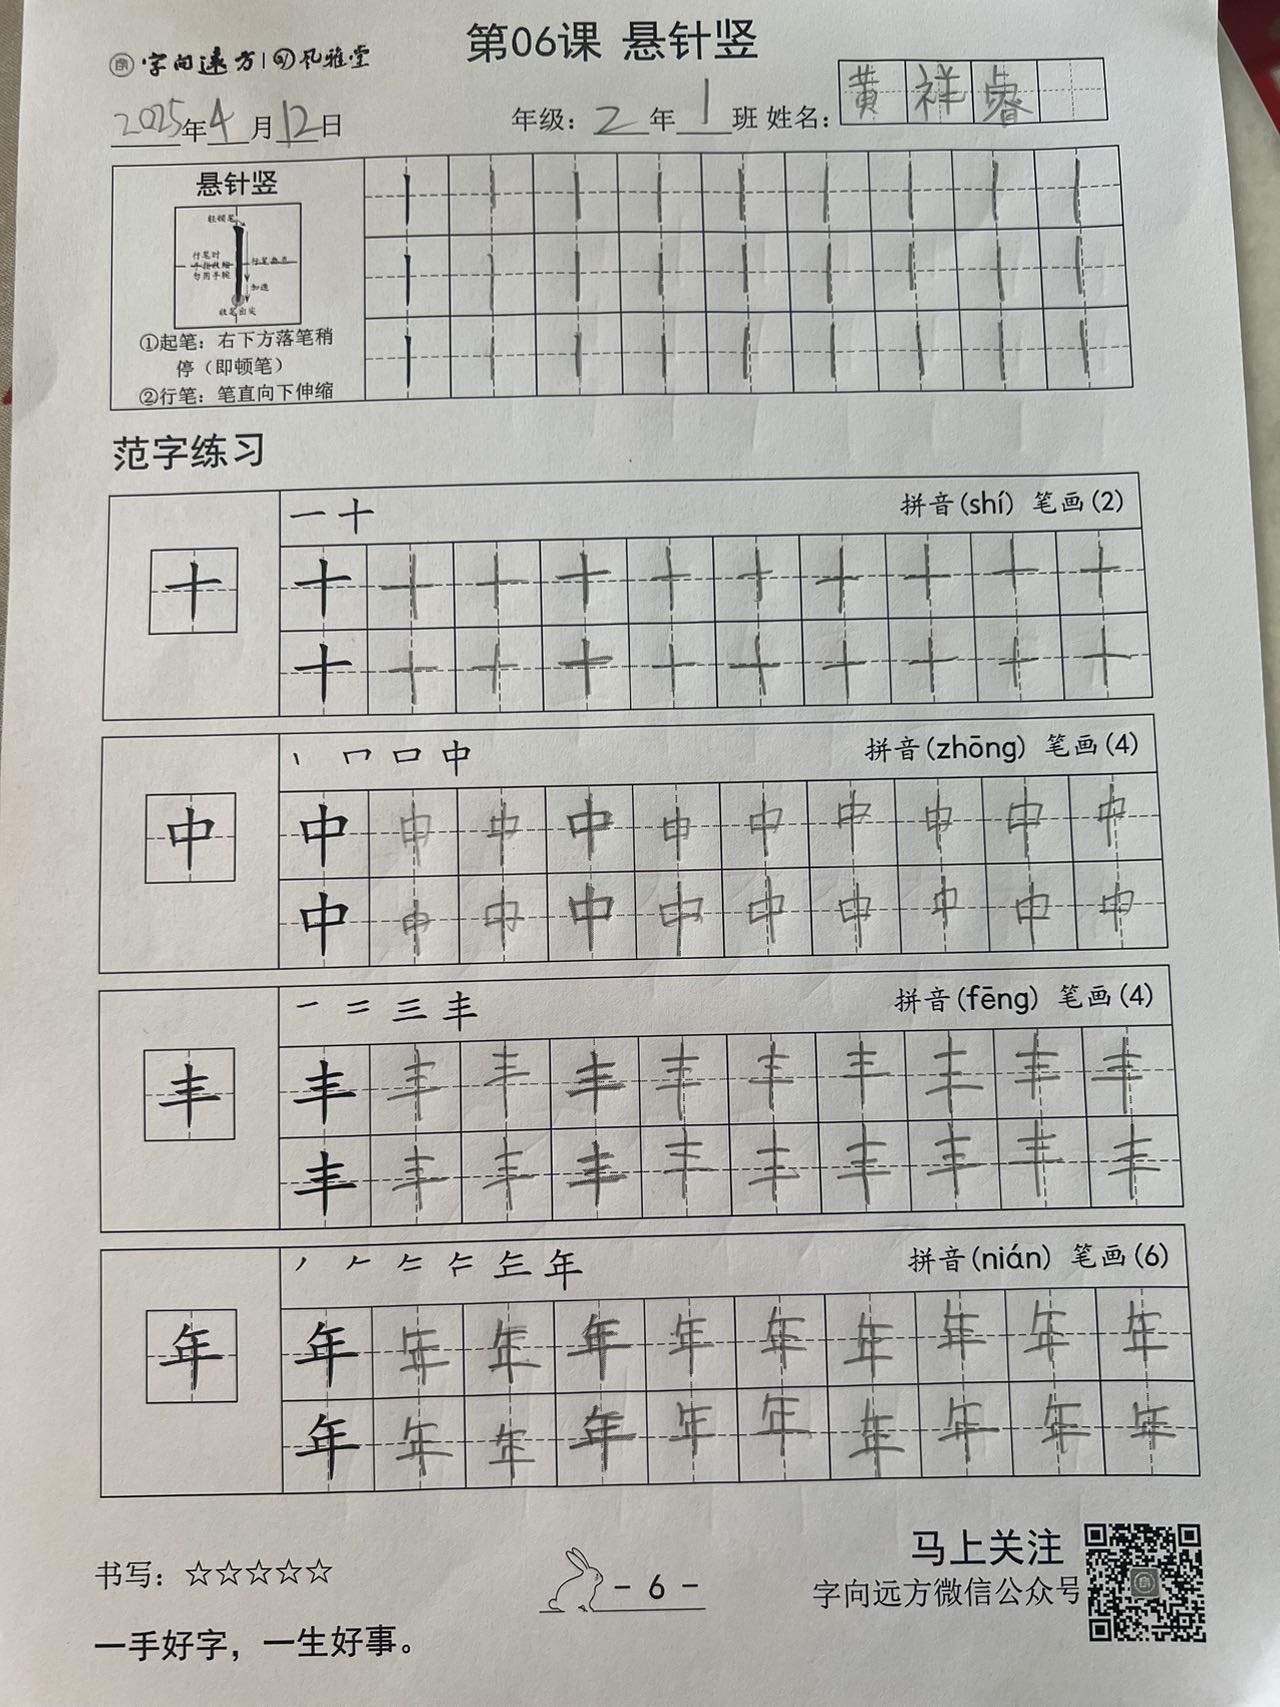 第06课 悬针竖
字向远方 | 风雅堂
2025年4月12日 年级：2年1班 姓名：黄祥睿
悬针竖
轻顿笔
行笔时
手指收缩
匀用手腕
行笔垂直
加速
收笔出尖
①起笔：右下方落笔稍
停（即顿笔）
②行笔：笔直向下伸缩
范字练习
一 十 拼音(shí) 笔画(2)
十 十 十 十 十 十 十 十 十 十 十
十 十 十 十 十 十 十 十 十 十
丨 口 中 拼音(zhōng) 笔画(4)
中 中 中 中 中 中 中 中 中 中 中
中 中 中 中 中 中 中 中 中 中
一 二 三 丰 拼音(fēng) 笔画(4)
丰 丰 丰 丰 丰 丰 丰 丰 丰 丰 丰
丰 丰 丰 丰 丰 丰 丰 丰 丰 丰
年 拼音(nián) 笔画(6)
年 年 年 年 年 年 年 年 年 年 年
年 年 年 年 年 年 年 年 年 年
书写：☆☆☆☆☆
- 6 -
马上关注
字向远方微信公众号
一手好字，一生好事。